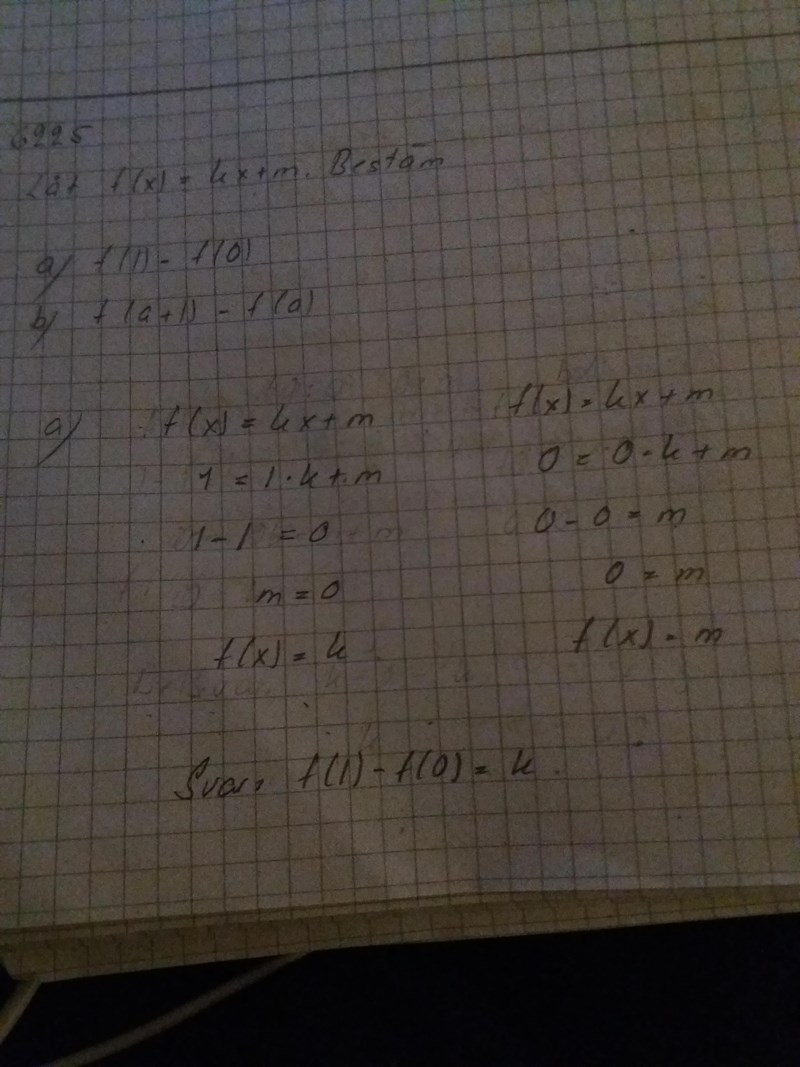 6225
Låt f(x) = kx+m. Bestäm
a) f(1) - f(0)
b) f(a+1) - f(a)
a) f(x) = kx+m
1 = 1·k+m
1-1 = 0
m = 0
f(x) = k
f(x) = kx+m
0 = 0·k+m
0-0 = m
0 = m
f(x) = m
Svar: f(1) - f(0) = k.